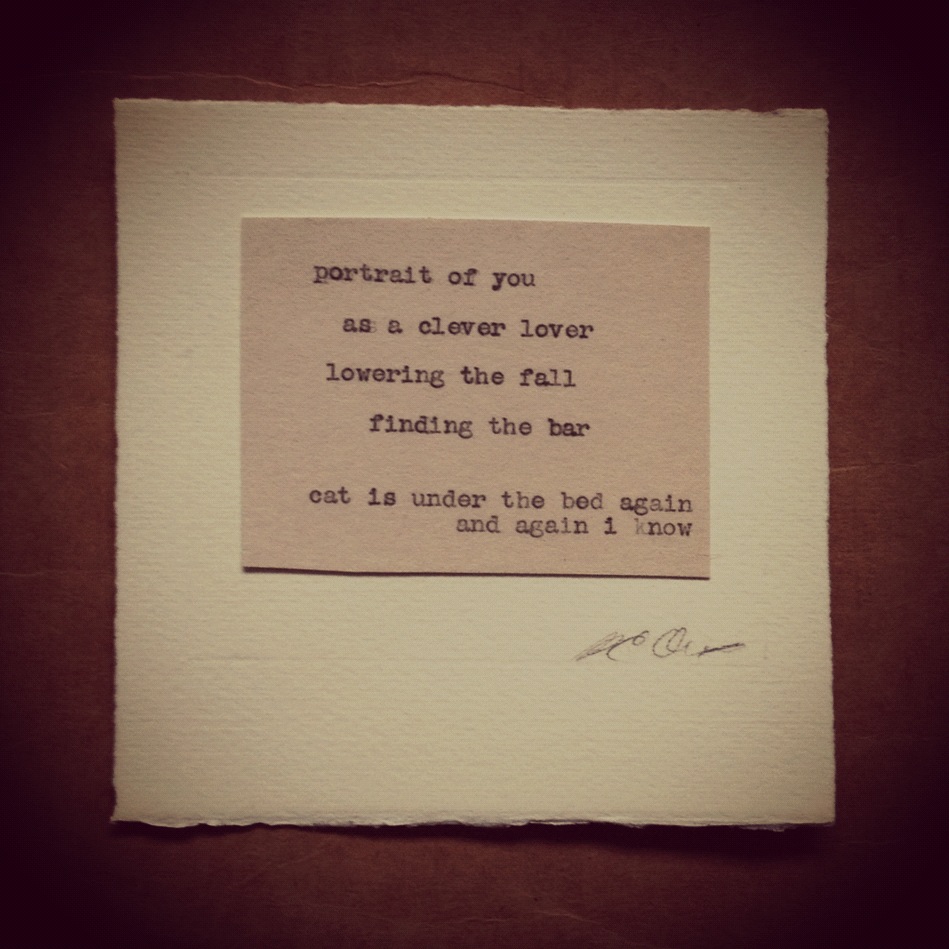 portrait of you
as a clever lover
lowering the fall
finding the bar
cat is under the bed again
and again i know